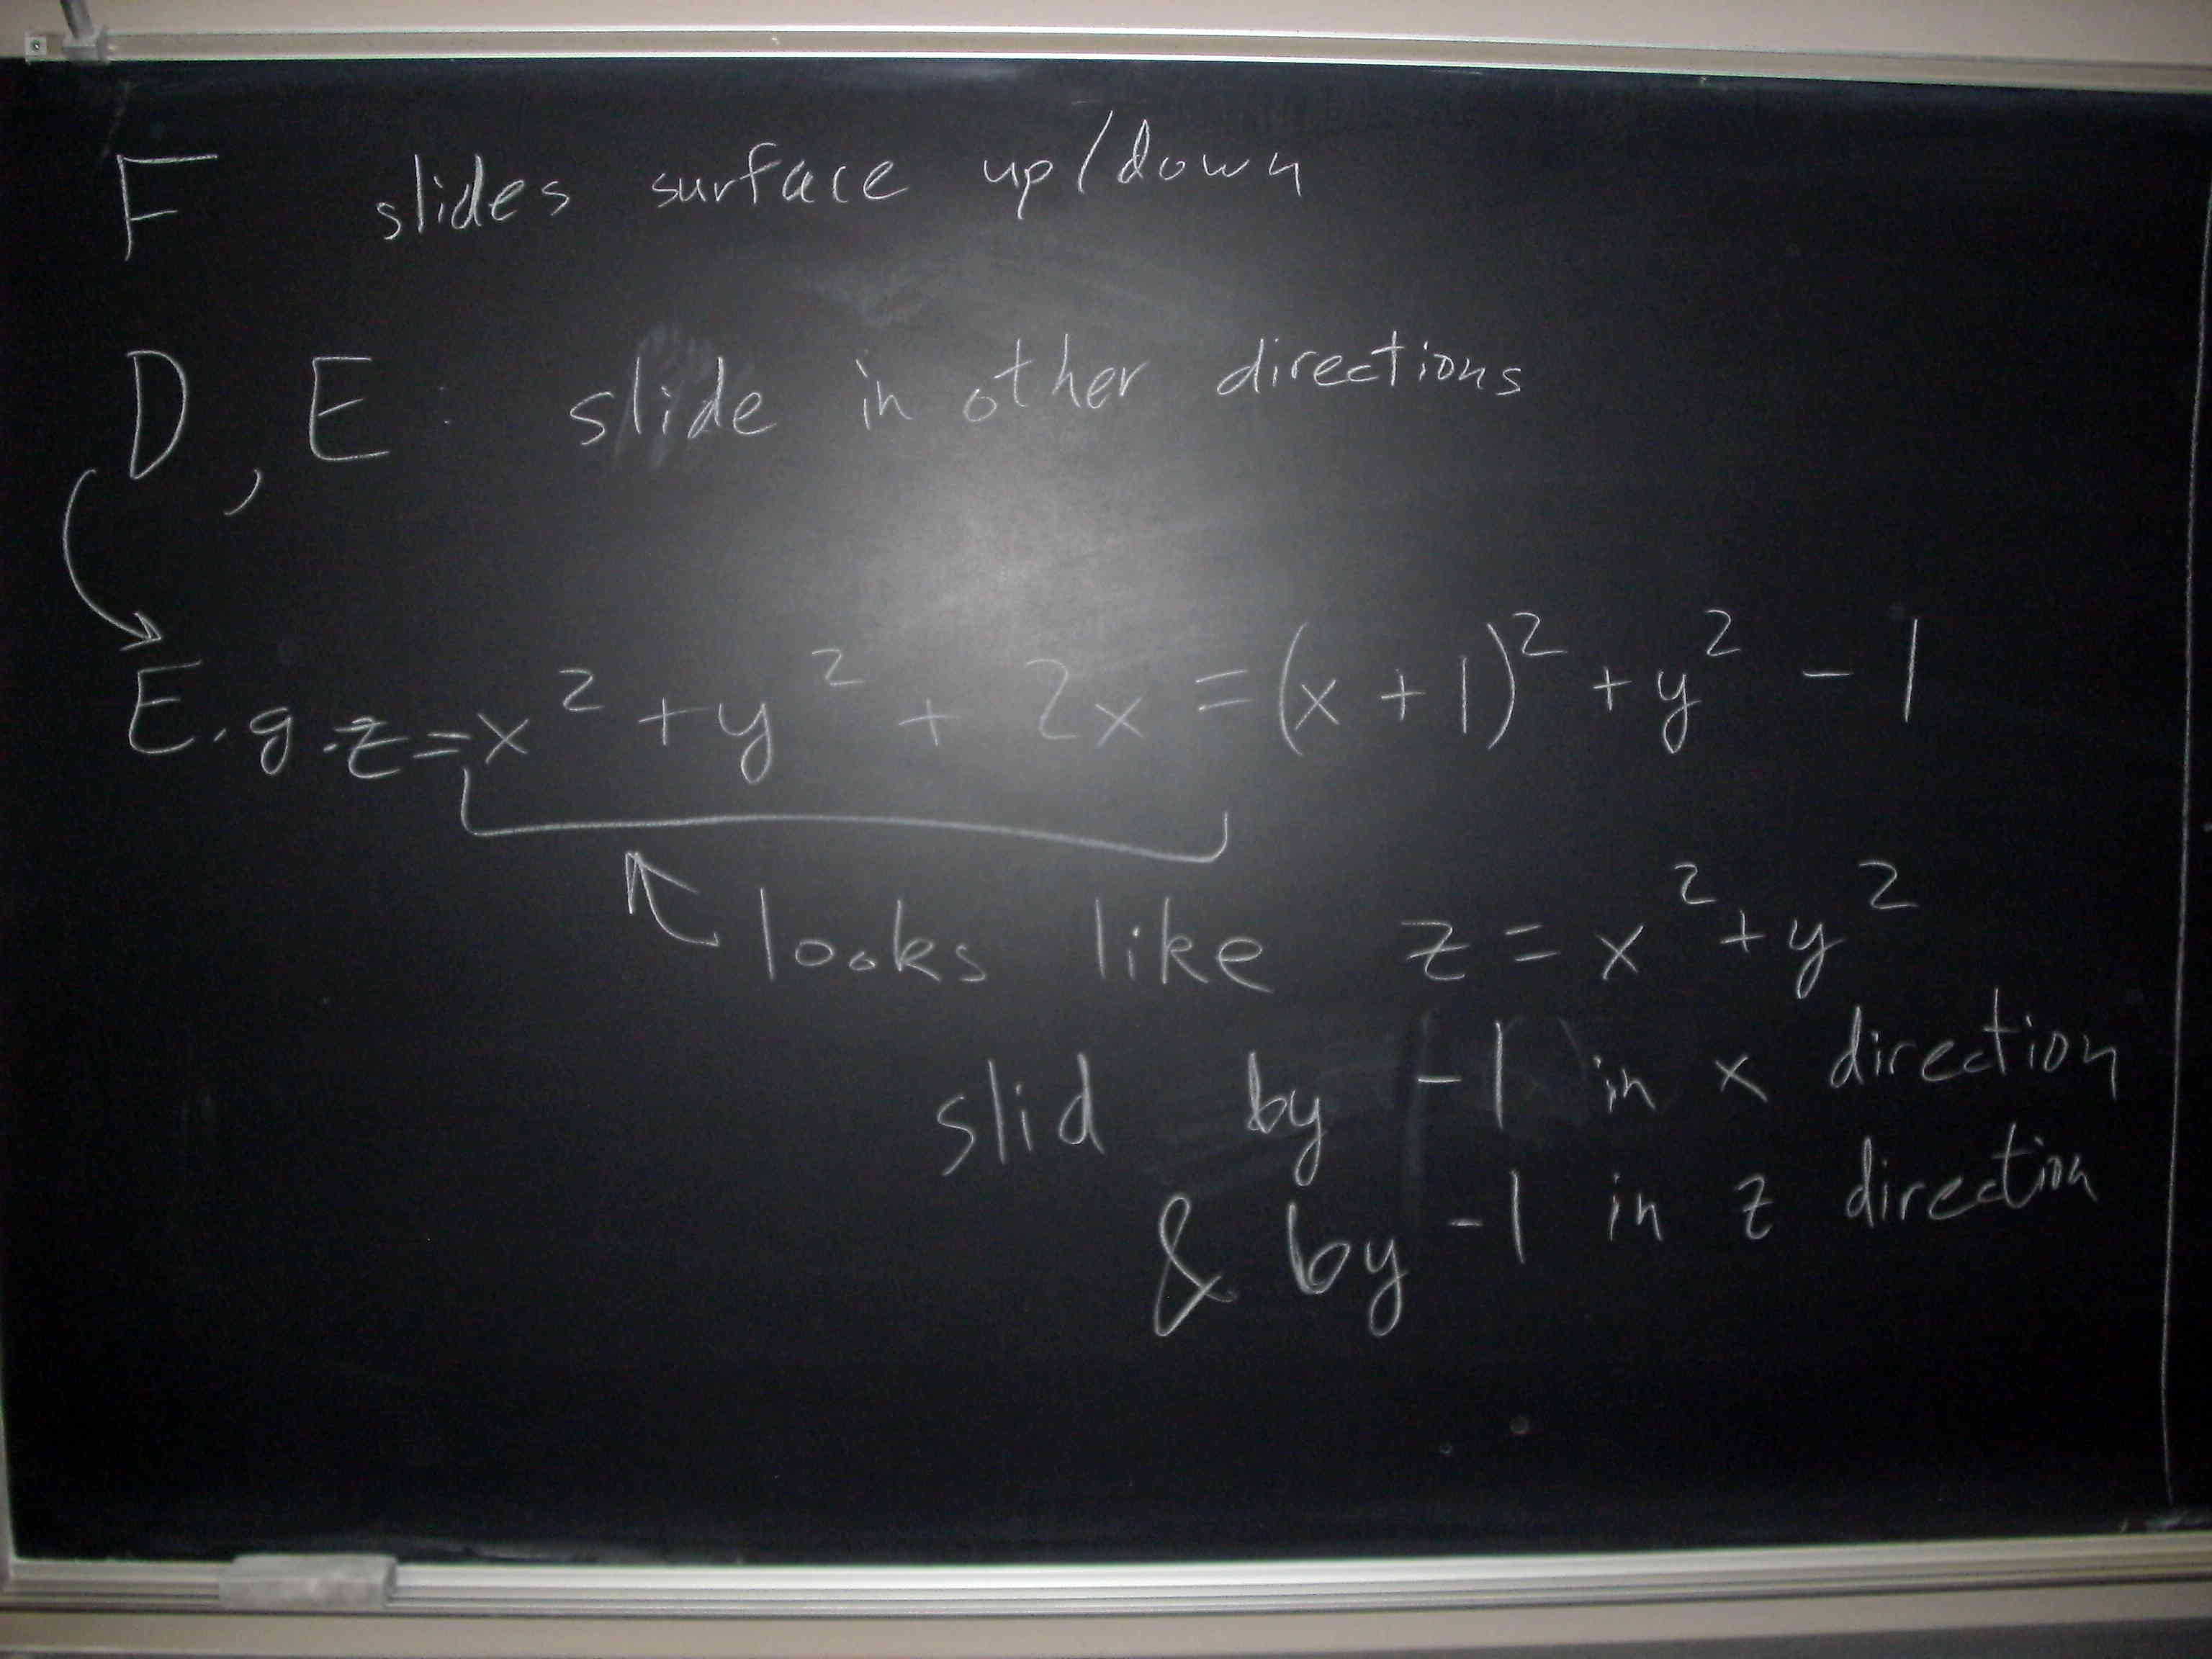 F slides surface up/down
D, E: slide in other directions
E.g. z = x² + y² + 2x = (x + 1)² + y² - 1
looks like z = x² + y²
slid by -1 in x direction
& by -1 in z direction